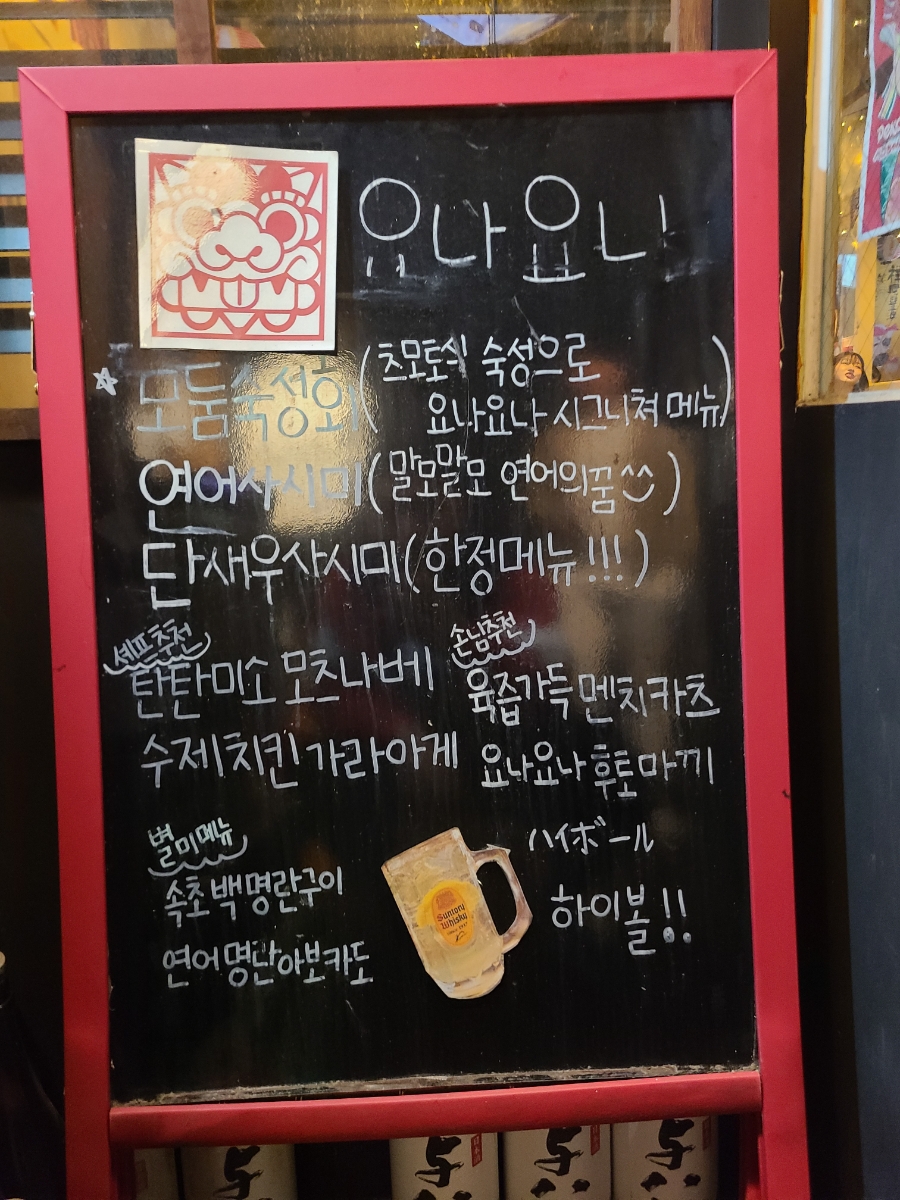 요나요나
☆ 모둠숙성회 (츠모토식 숙성으로
요나요나 시그니쳐 메뉴)
연어사시미 (말모말모 연어의꿈^^)
단새우사시미 (한정메뉴!!!)
셰프추천
탄탄미소 모츠나베
수제치킨가라아게
손님추천
육즙가득 멘치카츠
요나요나 후토마끼
별미메뉴
속초백명란구이
연어명란아보카도
Suntory
Whisky
ハイボール
하이볼!!